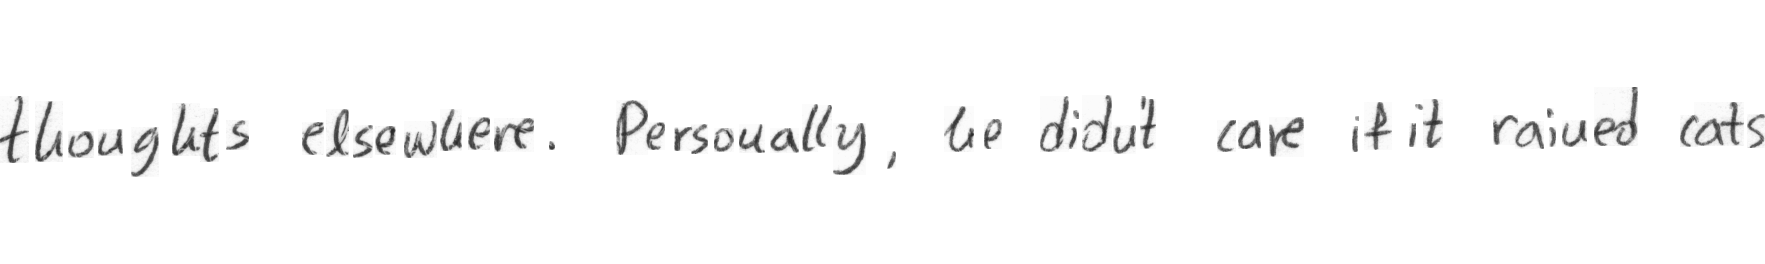 thoughts elsewhere. Personally, he didn't care if it rained cats